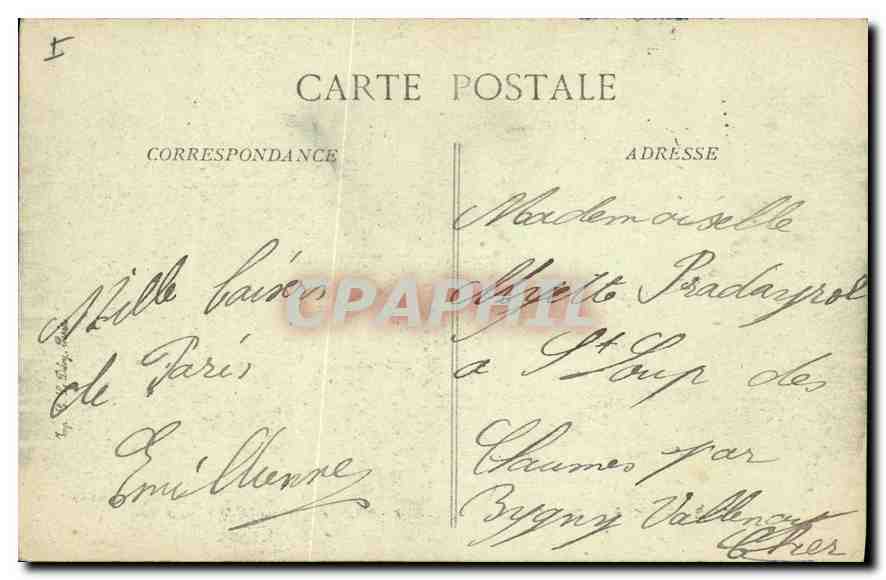 I
CARTE POSTALE
CORRESPONDANCE
Mille baisers
de Paris
Emilienne
ADRESSE
Mademoiselle
Pradayrol
a St Loup des
Chaumes par
Bygny Vallenay
Cher
CPAPHIL